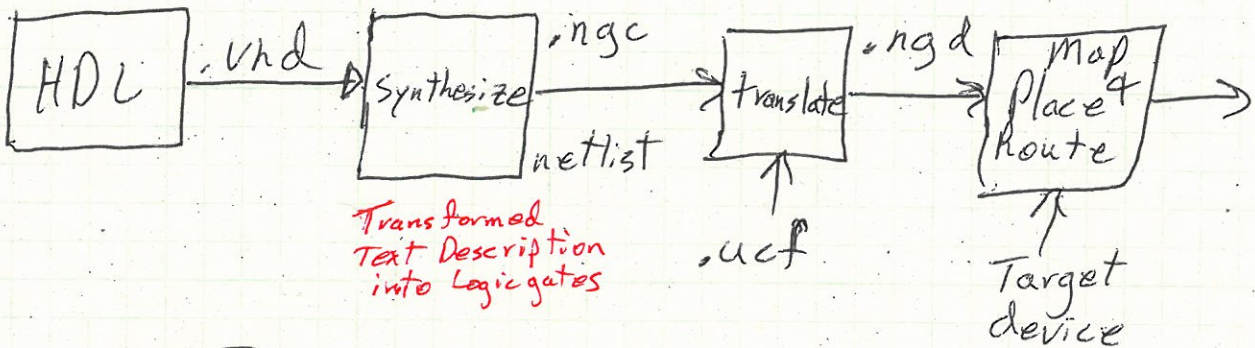 HDL
.vhd
Synthesize
.ngc
netlist
Transformed
Text Description
into Logic gates
translate
.ucf
.ngd
Map
Place &
Route
Target
device